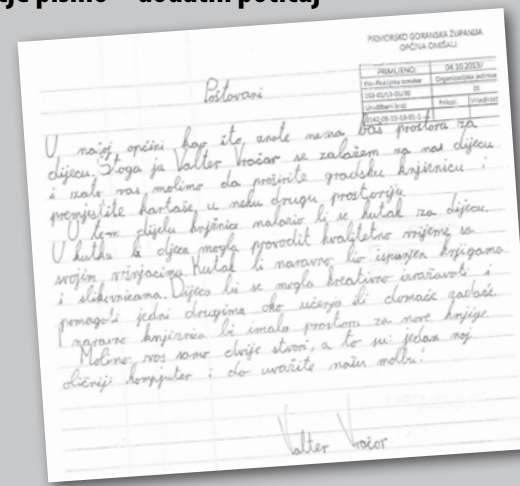 je pismo – dodatni poticaj
PRIMORSKO GORANSKA ŽUPANIJA
OPĆINA OMIŠALJ
PRIMLJENO: 04.10.2013/
Klasifikacijska oznaka Organizacijska jedinica
01
Urudžbeni broj Prilozi Vrijednost
Poštovani
U našoj općini kao što znate nema baš prostora za
dijecu. Stoga ja Valter Vračar se zalažem za nas dijecu
i zato vas molimo da proširite gradsku knjižnicu i
premjestite kartaše u neku drugu prostoriju.
U tem dijelu knjižnice nalazio bi se kutak za dijecu.
U kutku bi djeca mogla provodit kvalitetno vrijeme sa
svojim vršnjacima. Kutak bi naravno bio ispunjen knjigama
i slikovnicama. Dijeca bi se mogla kreativno izražavati i
pomagati jedni drugima oko učenja ili domaće zadaće.
I naravno knjižnica bi imala prostora za nove knjige.
Molimo vas samo dvije stvari, a to su: jedan naj
obićniji kompjuter i da uvažite našu molbu!
Valter Vračar